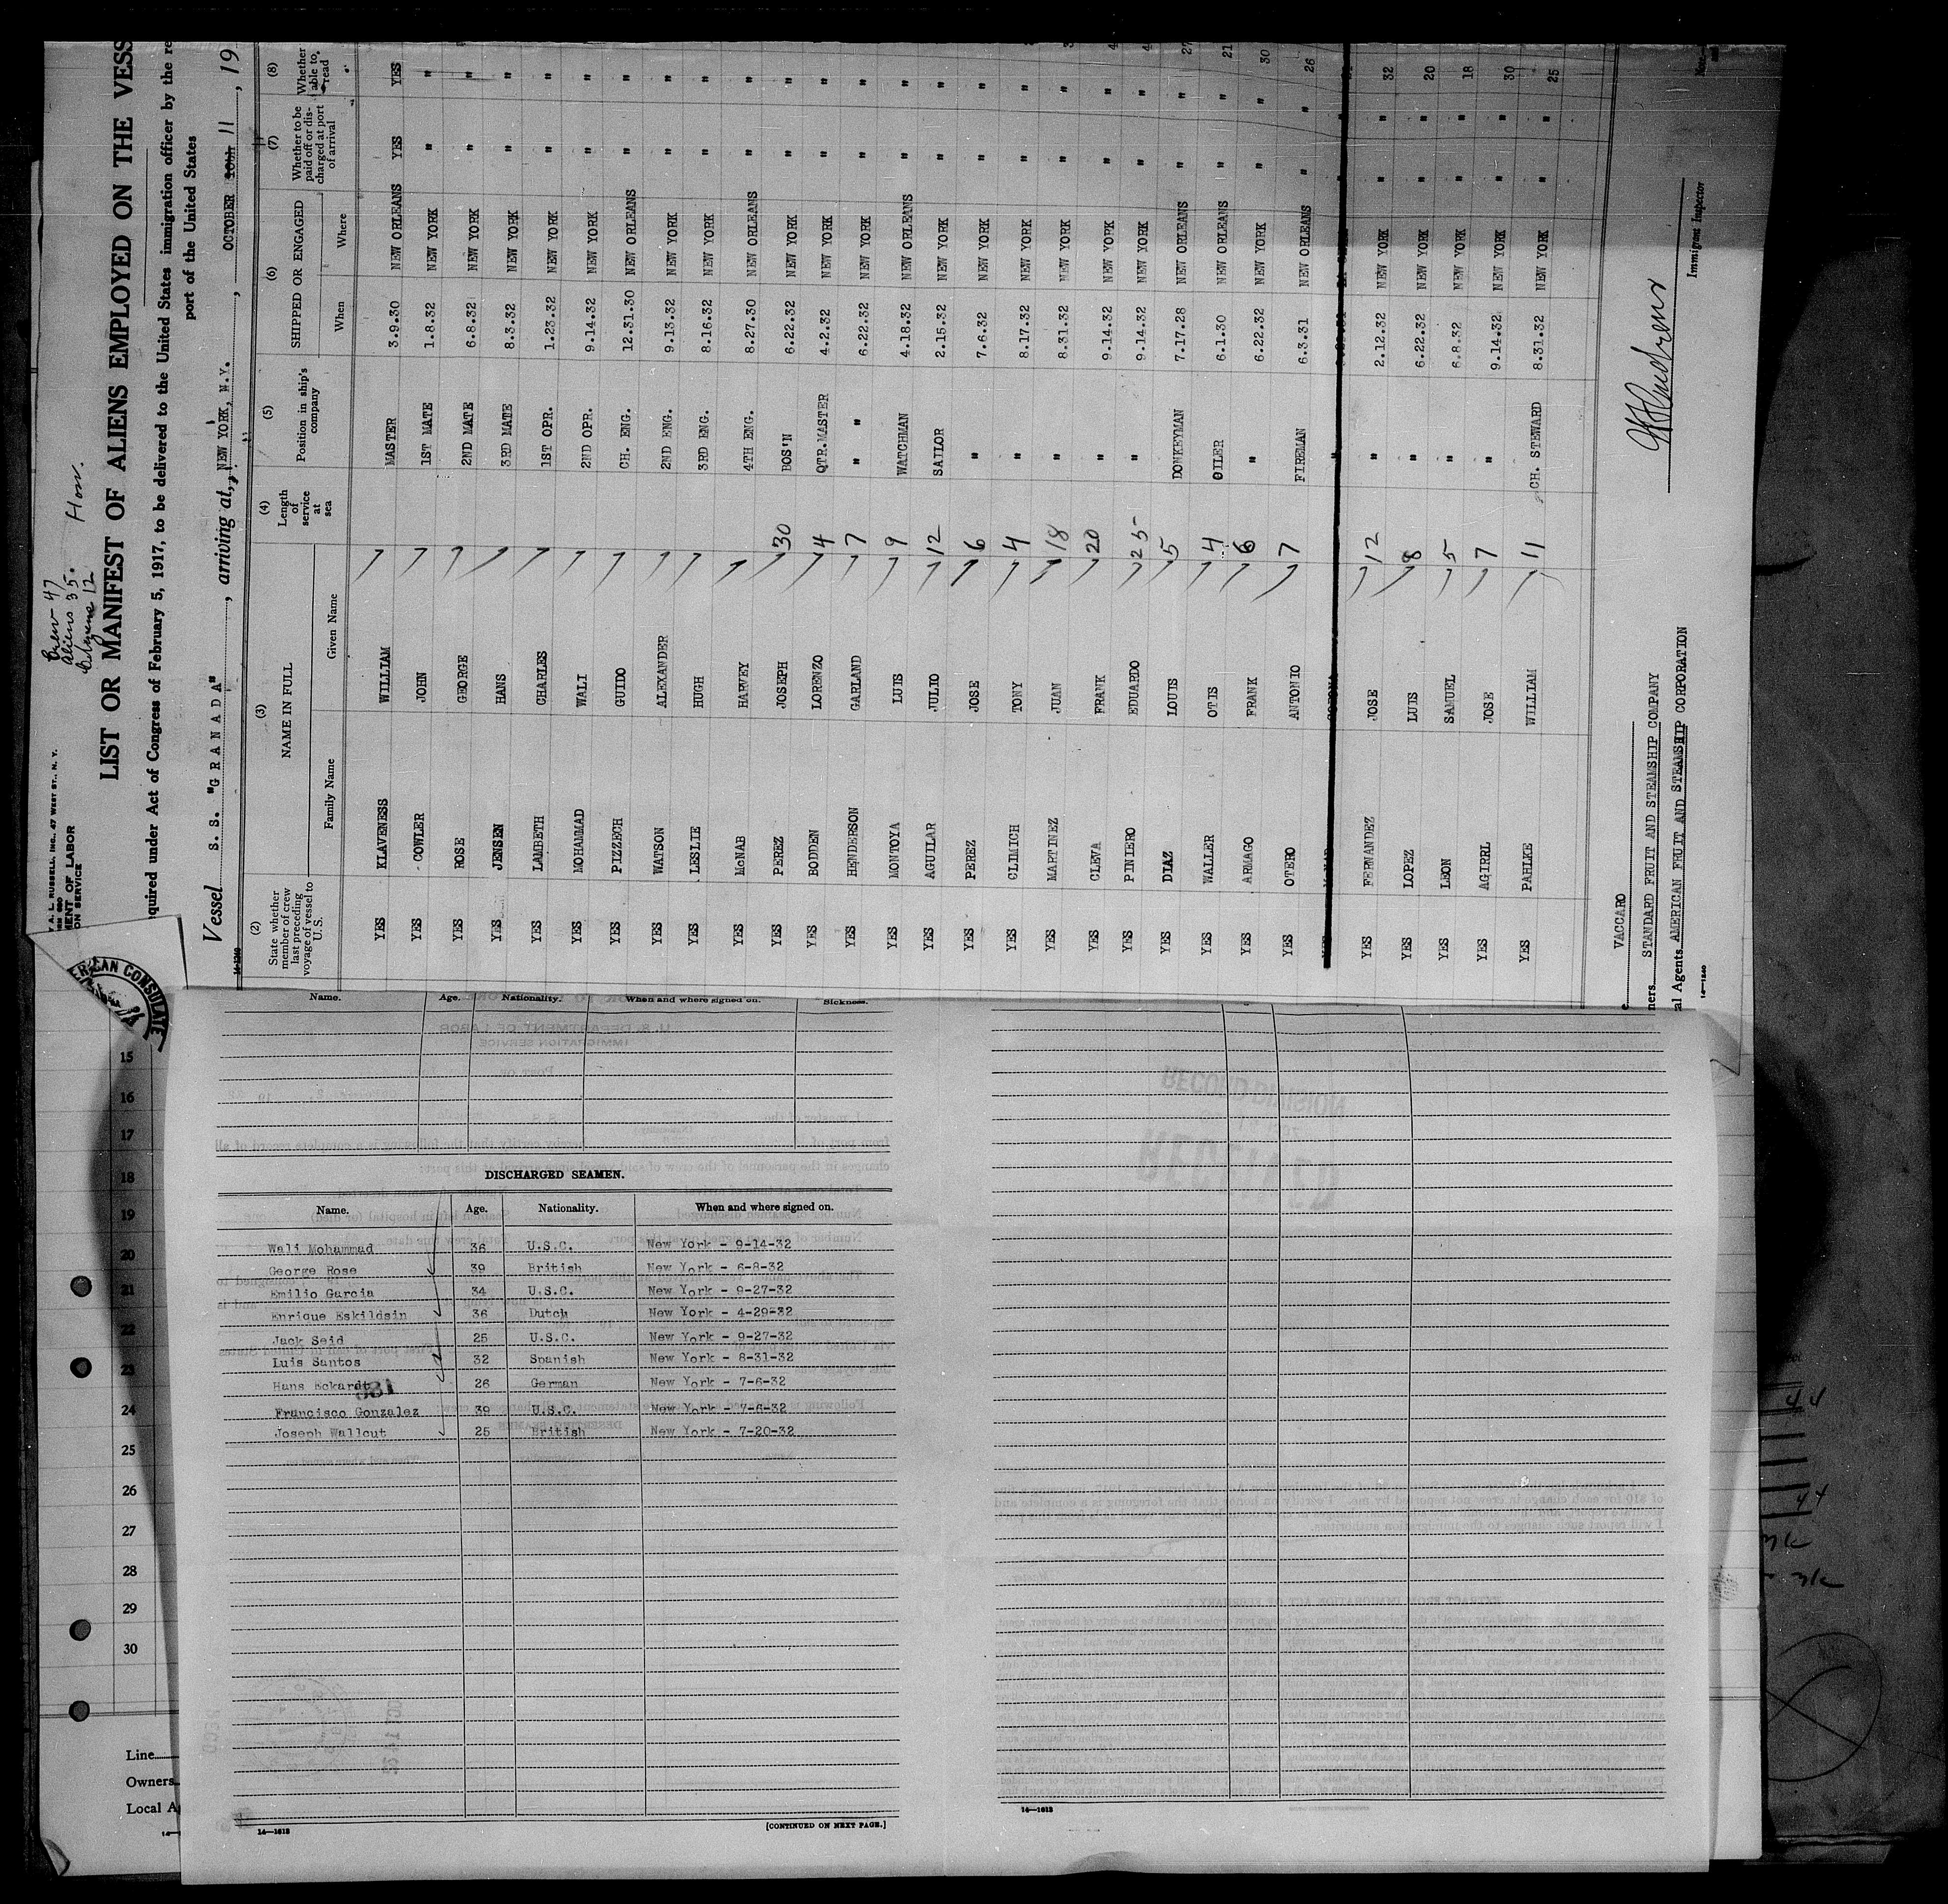 Crew 47
Aliens 35. Hon.
Citizens 12
A. L. RUSSELL, INC., 47 WEST ST., N. Y.
MENT OF LABOR
ON SERVICE
LIST OR MANIFEST OF ALIENS EMPLOYED ON THE VESS
equired under Act of Congress of February 5, 1917, to be delivered to the United States immigration officer by the re
port of the United States
Vessel S. S. "GRANADA", arriving at, NEW YORK, N.Y., OCTOBER 11, 19
(2) (3) (4) (5) (6) (7) (8)
State whether member of crew last preceding voyage of vessel to U.S. NAME IN FULL Length of service at sea Position in ship's company SHIPPED OR ENGAGED Whether to be paid off or discharged at port of arrival Whether able to read
Family Name Given Name When Where
YES KLAVENESS WILLIAM MASTER 3.9.30 NEW ORLEANS YES YES
YES COWLER JOHN 1ST MATE 1.8.32 NEW YORK " "
YES ROSE GEORGE 2ND MATE 6.8.32 NEW YORK " "
YES JENSEN HANS 3RD MATE 8.3.32 NEW YORK " "
YES LAMBETH CHARLES 1ST OPR. 1.23.32 NEW YORK " "
YES MOHAMMAD WALI 2ND OPR. 9.14.32 NEW YORK " "
YES PIZZECH GUIDO CH. ENG. 12.31.30 NEW ORLEANS " "
YES WATSON ALEXANDER 2ND ENG. 9.13.32 NEW YORK " "
YES LESLIE HUGH 3RD ENG. 8.16.32 NEW YORK " "
YES McNAB HARVEY 4TH ENG. 8.27.30 NEW ORLEANS " "
YES PEREZ JOSEPH 30 BOS'N 6.22.32 NEW YORK " "
YES BODDEN LORENZO 4 QTR.MASTER 4.2.32 NEW YORK " "
YES HENDERSON GARLAND 7 " " 6.22.32 NEW YORK " "
YES MONTOYA LUIS 9 WATCHMAN 4.18.32 NEW ORLEANS " "
YES AGUILAR JULIO 12 SAILOR 2.15.32 NEW YORK " "
YES PEREZ JOSE 6 " 7.6.32 NEW YORK " "
YES CLIMICH TONY 4 " 8.17.32 NEW YORK " "
YES MARTINEZ JUAN 18 " 8.31.32 NEW YORK " "
YES CLEVA FRANK 20 " 9.14.32 NEW YORK " "
YES PINIERO EDUARDO 25 " 9.14.32 NEW YORK " "
YES DIAZ LOUIS 5 DONKEYMAN 7.17.28 NEW ORLEANS " " 27
YES WALLER OTIS 4 OILER 6.1.30 NEW ORLEANS " " 21
YES ARMAGO FRANK 6 " 6.22.32 NEW YORK " " 30
YES OTERO ANTONIO 7 FIREMAN 6.3.31 NEW ORLEANS " " 26
YES FERNANDEZ JOSE 12 " 2.12.32 NEW YORK " " 32
YES LOPEZ LUIS 8 " 6.22.32 NEW YORK " " 20
YES LEON SAMUEL 5 " 6.8.32 NEW YORK " " 18
YES AGIRRL JOSE 7 " 9.14.32 NEW YORK " " 30
YES PAHLKE WILLIAM 11 CH. STEWARD 8.31.32 NEW YORK " " 25
VACCARO
ners STANDARD FRUIT AND STEAMSHIP COMPANY
al Agents AMERICAN FRUIT AND STEAMSHIP CORPORATION
14—1240
Immigrant Inspector
AMERICAN CONSULATE
Name. Age. Nationality. When and where signed on. Sickness.
15
16
17
18
19
20
21
22
23
24
25
26
27
28
29
30
Line
Owners
Local A
DISCHARGED SEAMEN.
Name. Age. Nationality. When and where signed on.
Wali Mohammad 36 U.S.C. New York - 9-14-32
George Rose 39 British New York - 6-8-32
Emilio Garcia 34 U.S.C. New York - 9-27-32
Enrique Eskildsin 36 Dutch New York - 4-29-32
Jack Seid 25 U.S.C. New York - 9-27-32
Luis Santos 32 Spanish New York - 8-31-32
Hans Eckardt 26 German New York - 7-6-32
Francisco Gonzalez 39 U.S.C. New York - 7-6-32
Joseph Wallcut 25 British New York - 7-20-32
14—1613
[CONTINUED ON NEXT PAGE.]
14—1613
44
44